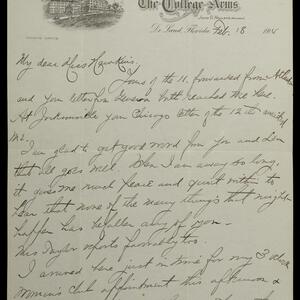 The College Arms
De Land, Florida Feb. 18 191
My dear Miss Hawkins,
Yours of the 11. forwarded from
and your letter from both reached me here.
At Jacksonville your Chicago letter of the 12th
me.
I am glad to get good word from you and
that all goes well. When I am away so long,
it gives me much peace and quiet within to
hear that none of the many things that might
happen has befallen any of you—
Mrs Taylor reports favorably too.
I arrived here just in time for my 3 o'clock
Woman's Club appointment this afternoon &